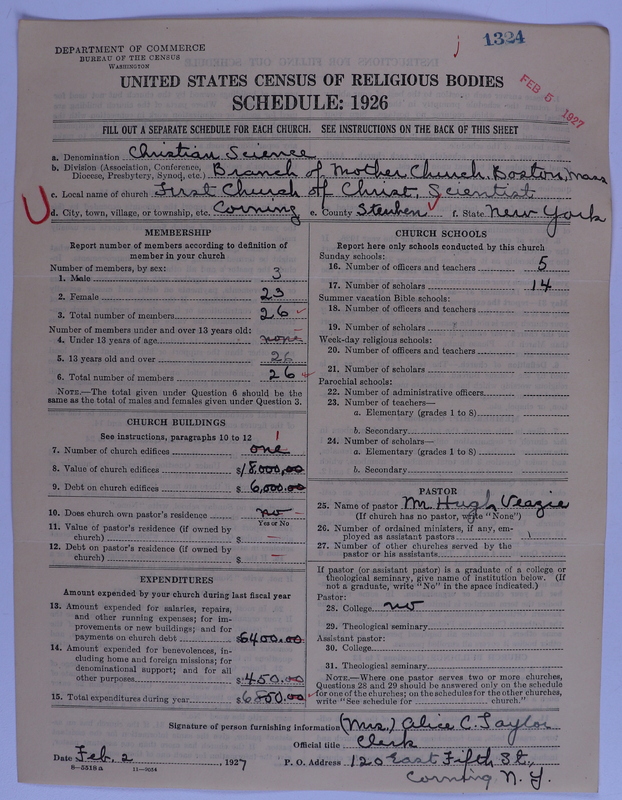 DEPARTMENT OF COMMERCE
BUREAU OF THE CENSUS
WASHINGTON
1324
FEB 5 1927
UNITED STATES CENSUS OF RELIGIOUS BODIES
SCHEDULE: 1926
FILL OUT A SEPARATE SCHEDULE FOR EACH CHURCH. SEE INSTRUCTIONS ON THE BACK OF THIS SHEET
a. Denomination Christian Science
b. Division (Association, Conference, Diocese, Presbytery, Synod, etc.) Branch of Mother Church, Boston, Mass
c. Local name of church First Church of Christ, Scientist
d. City, town, village, or township, etc. Corning e. County Steuben f. State New York
MEMBERSHIP
Report number of members according to definition of
member in your church
Number of members, by sex:
1. Male 3
2. Female 23
3. Total number of members 26
Number of members under and over 13 years old:
4. Under 13 years of age none
5. 13 years old and over 26
6. Total number of members 26
NOTE.—The total given under Question 6 should be
same as the total of males and females given under Question 3.
CHURCH BUILDINGS
See instructions, paragraphs 10 to 12
7. Number of church edifices one
8. Value of church edifices $18,000.00
9. Debt on church edifices $ 6,000.00
10. Does church own pastor's residence no
Yes or No
11. Value of pastor's residence (if owned by
church) $ —
12. Debt on pastor's residence (if owned by
church) $ —
EXPENDITURES
Amount expended by your church during last fiscal year
13. Amount expended for salaries, repairs,
and other running expenses; for im-
provements or new buildings; and for
payments on church debt $6400.00
14. Amount expended for benevolences, in-
cluding home and foreign missions; for
denominational support; and for all
other purposes $450.00
15. Total expenditures during year $6850.00
CHURCH SCHOOLS
Report here only schools conducted by this church
Sunday schools:
16. Number of officers and teachers 5
17. Number of scholars 14
Summer vacation Bible schools:
18. Number of officers and teachers
19. Number of scholars
Week-day religious schools:
20. Number of officers and teachers
21. Number of scholars
Parochial schools:
22. Number of administrative officers
23. Number of teachers—
a. Elementary (grades 1 to 8)
b. Secondary
24. Number of scholars—
a. Elementary (grades 1 to 8)
b. Secondary
PASTOR
25. Name of pastor M. Hugh Veazie
(If church has no pastor, write "None")
26. Number of ordained ministers, if any, em-
ployed as assistant pastors
27. Number of other churches served by the
pastor or his assistants
If pastor (or assistant pastor) is a graduate of a college or
theological seminary, give name of institution below. (If
not a graduate, write "No" in the space indicated.)
Pastor:
28. College no
29. Theological seminary
Assistant pastor:
30. College
31. Theological seminary
NOTE.—Where one pastor serves two or more churches,
Questions 28 and 29 should be answered only on the schedule
for one of the churches; on the schedules for the other churches,
write "See schedule for church."
Signature of person furnishing information (Mrs.) Alice C. Taylor
Official title Clerk
Date Feb. 2 1927 P. O. Address 120 East Fifth St.,
8—5518 a 11—9034 Corning N. Y.